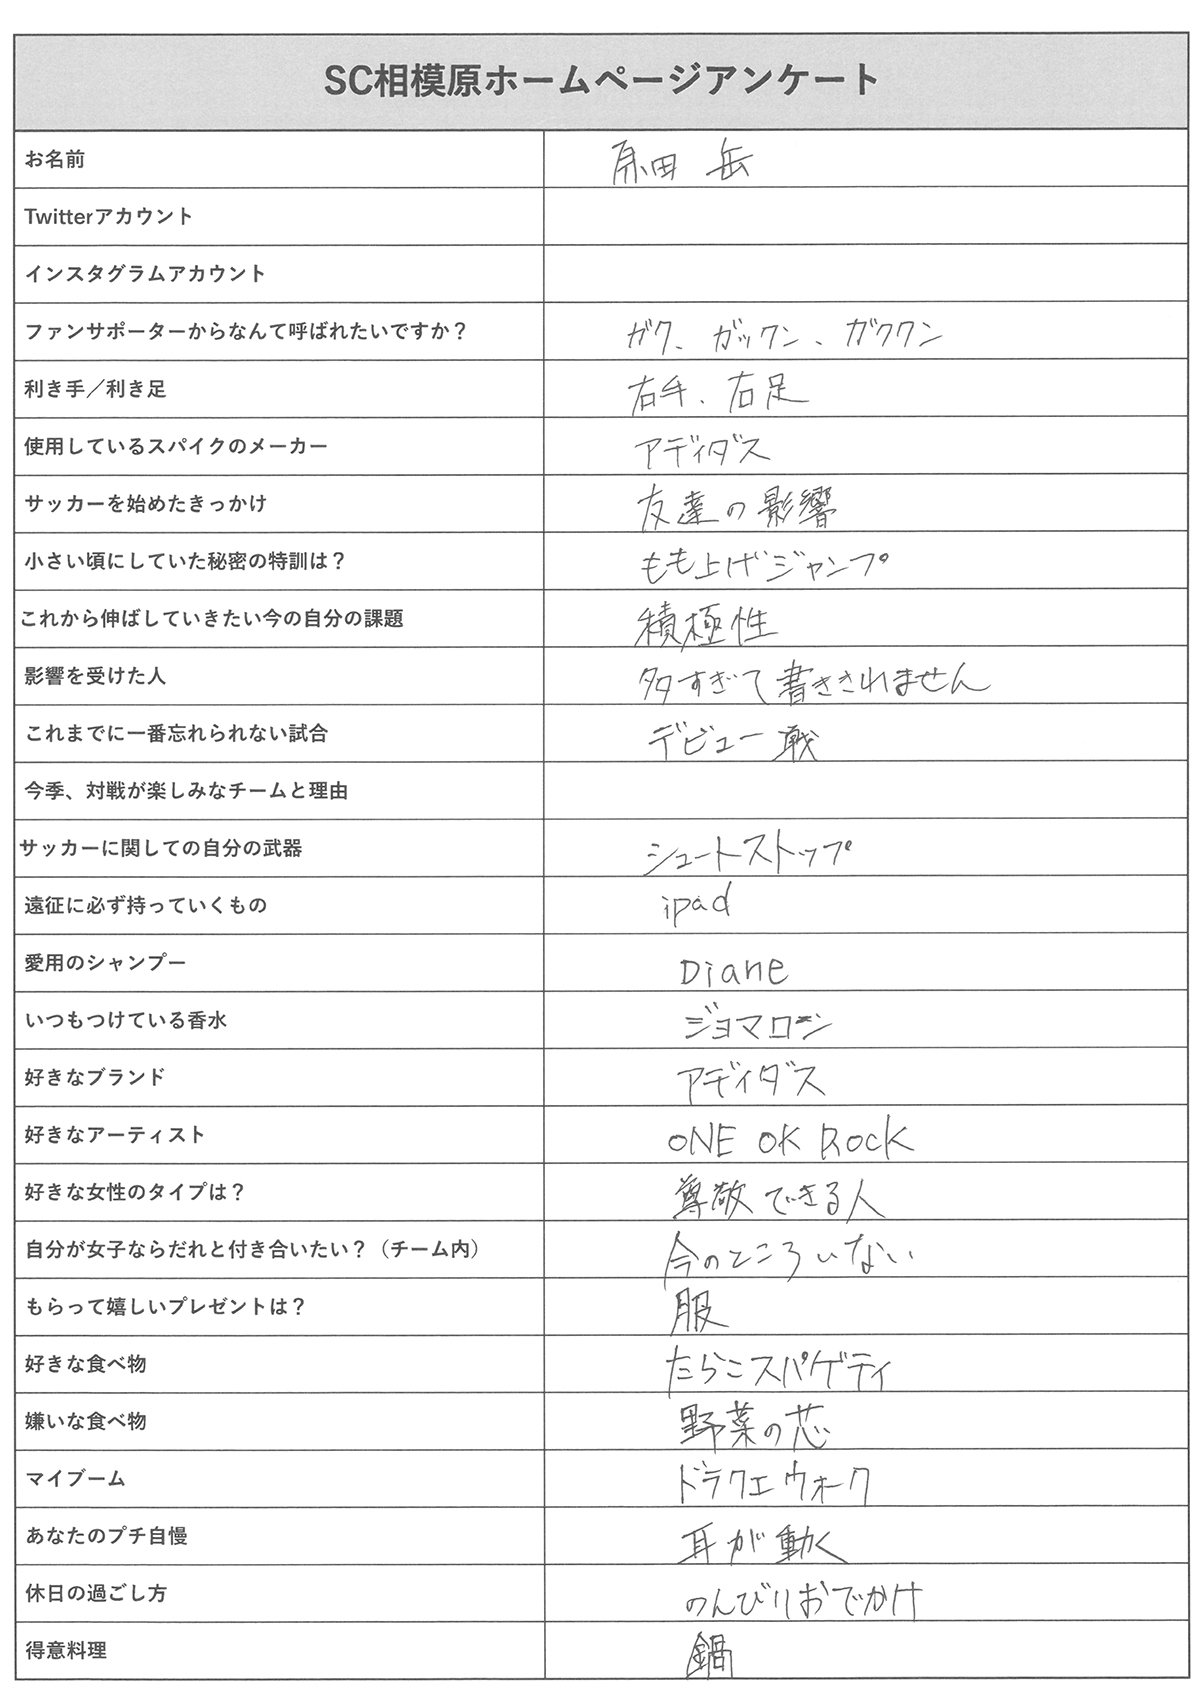 SC相模原ホームページアンケート
お名前 原田 岳
Twitterアカウント
インスタグラムアカウント
ファンサポーターからなんて呼ばれたいですか？ ガク、ガックン、ガククン
利き手／利き足 右手、右足
使用しているスパイクのメーカー アディダス
サッカーを始めたきっかけ 友達の影響
小さい頃にしていた秘密の特訓は？ もも上げジャンプ
これから伸ばしていきたい今の自分の課題 積極性
影響を受けた人 多すぎて書ききれません
これまでに一番忘れられない試合 デビュー戦
今季、対戦が楽しみなチームと理由
サッカーに関しての自分の武器 シュートストップ
遠征に必ず持っていくもの ipad
愛用のシャンプー Diane
いつもつけている香水 ジョマローン
好きなブランド アディダス
好きなアーティスト ONE OK ROCK
好きな女性のタイプは？ 尊敬できる人
自分が女子ならだれと付き合いたい？（チーム内） 今のところいない
もらって嬉しいプレゼントは？ 服
好きな食べ物 たらこスパゲティ
嫌いな食べ物 野菜の芯
マイブーム ドラクエウォーク
あなたのプチ自慢 耳が動く
休日の過ごし方 のんびりおでかけ
得意料理 鍋